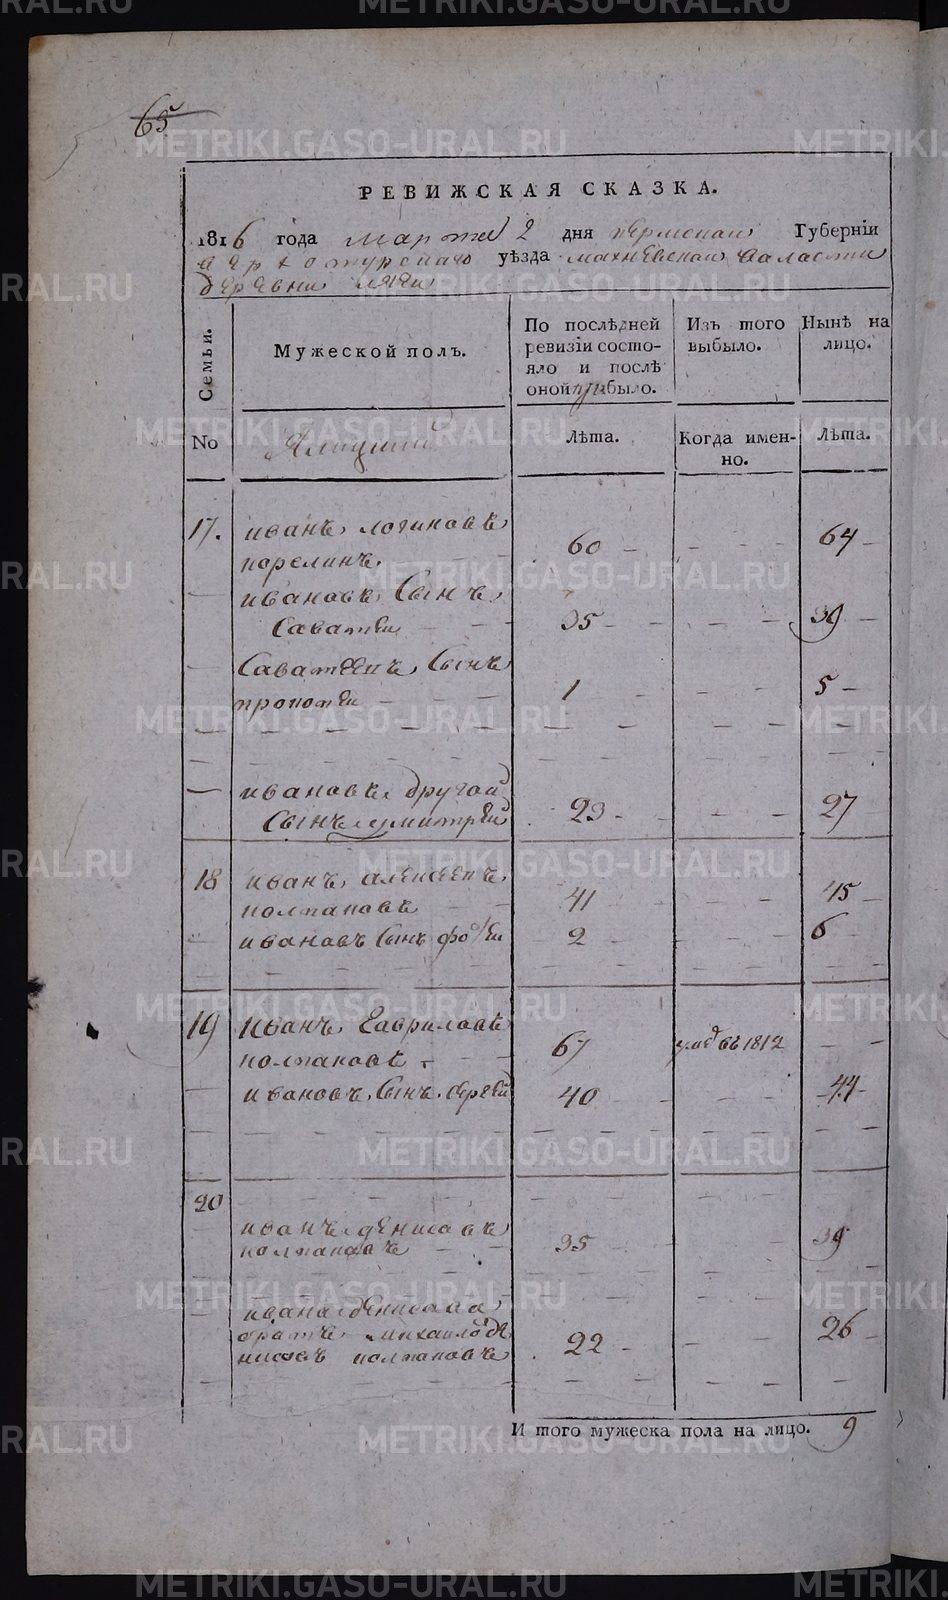 METRIKI.GASO-URAL.RU
65
РЕВИЖСКАЯ СКАЗКА.
1816 года марта 2 дня пермскаи Губерніи
верхотурскаго уѣзда махневскаи валасти
деревни
Семьи.
No
Мужеской полъ.
По послѣдней ревизіи состо-
яло и послѣ
оной прибыло.
Лѣта.
Изъ того
выбыло.
Когда имен-
но.
Нынѣ на
лицо.
Лѣта.
17. иванъ логиновъ
корелинъ 60 64
ивановъ Сынъ
Саватеи 35 39
Саватеевъ Сынъ
прокопеи 1 5
ивановъ другой
Сынъ думитреи 23 27
18 иванъ алексеевъ
колтаковъ 41 45
ивановъ Сынъ 2 6
19 иванъ Гавриловъ
колтаковъ 67 умре въ 1812
ивановъ Сынъ сергеи 40 44
20
иванъ денисавъ
колтаковъ 35 39
ивана денисава
братъ михаило де
нисовъ колтаковъ 22 26
И того мужеска пола на лицо. 9